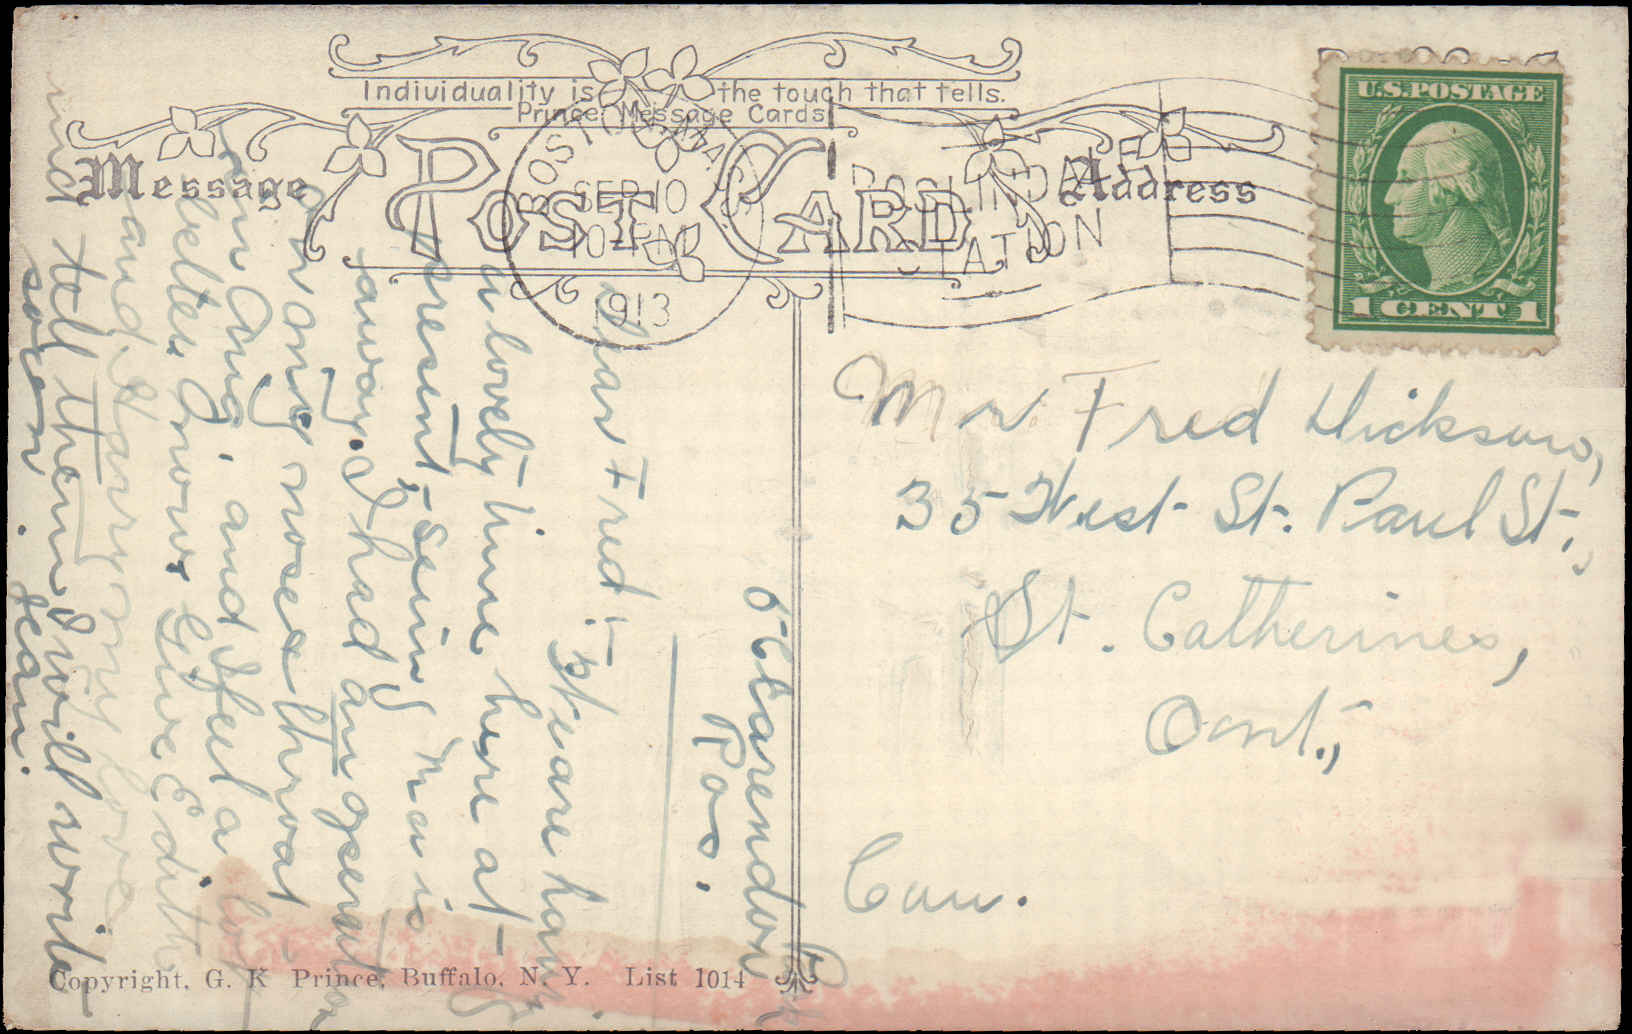 Individuality is the touch that tells.
Prince Message Cards
Message
Post Card
Address
BOSTON, MASS.
SEP 10
10 PM
1913
ROSLINDALE
STATION
U.S. POSTAGE
1 CENT 1
Mr Fred Dickson,
35 West St. Paul St.,
St. Catherines,
Ont.,
Can.
5 Clarendon
Dear Fred:-
are having
a lovely time here at
present, seeing Ma is
away. I had an operation
on my nose & throat
in Aug., and feel a lot
better now. Give Edith
and Harry my love
and tell them I will write
soon. Jean.
Copyright, G. K Prince, Buffalo, N. Y. List 1014